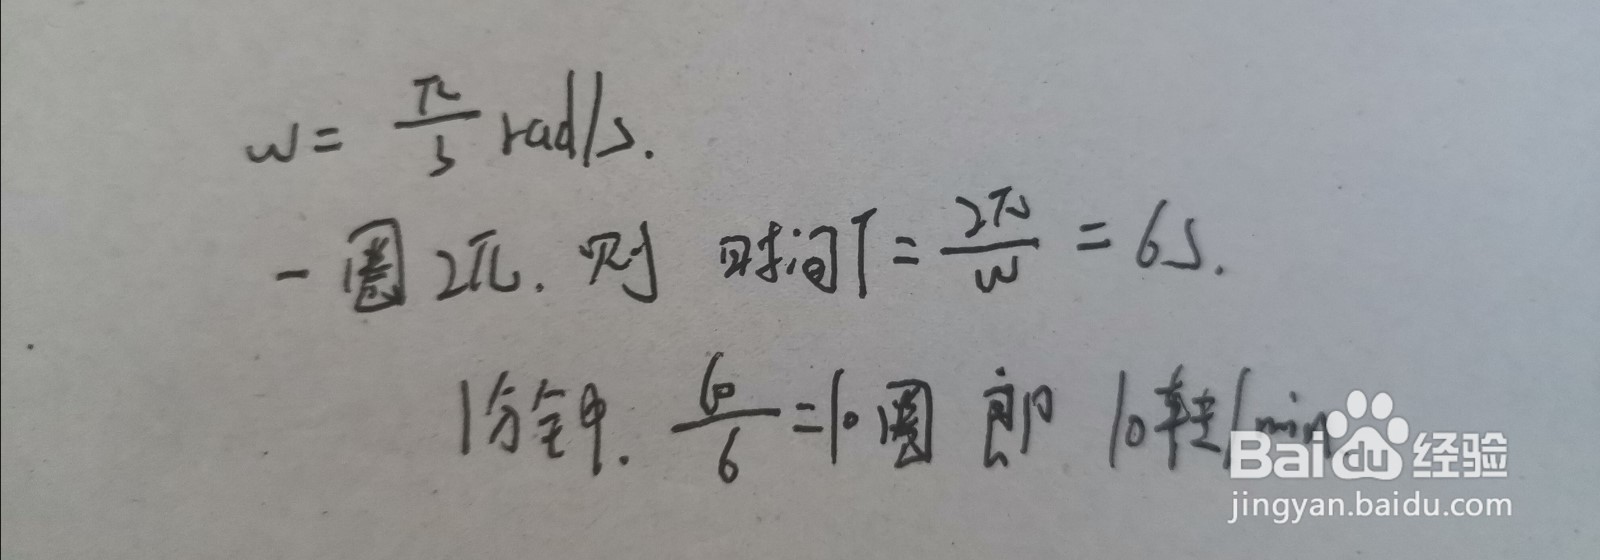 w = π/3 rad/s.
一圈2π. 则 时间T = 2π/w = 6s.
1分钟. 60/6 = 10圈 即 10转/min
Baidu经验
jingyan.baidu.com